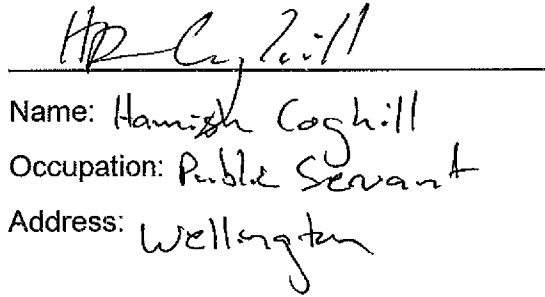 Name: Hamish Coghill
Occupation: Public Servant
Address: Wellington